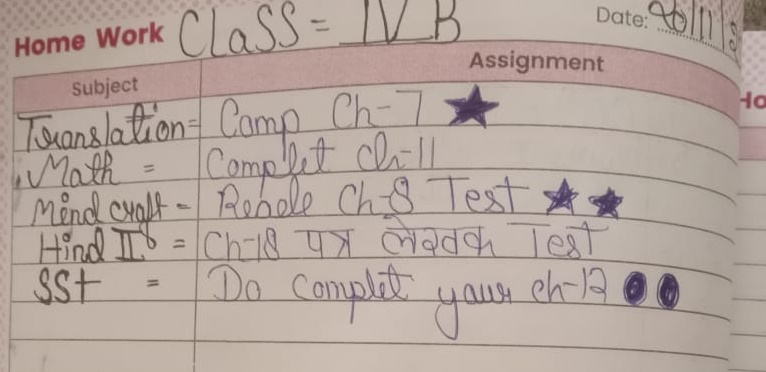 Home Work Class = IV B Date: 20/11/
Subject Assignment
Translation = Comp Ch-7 ★
Math = Complet Ch-11
Mind craft - Ch-8 Test ★ ★
Hind II = Ch-18 पत्र लेखक Test
SSt = Do Complet your ch-12
Ho